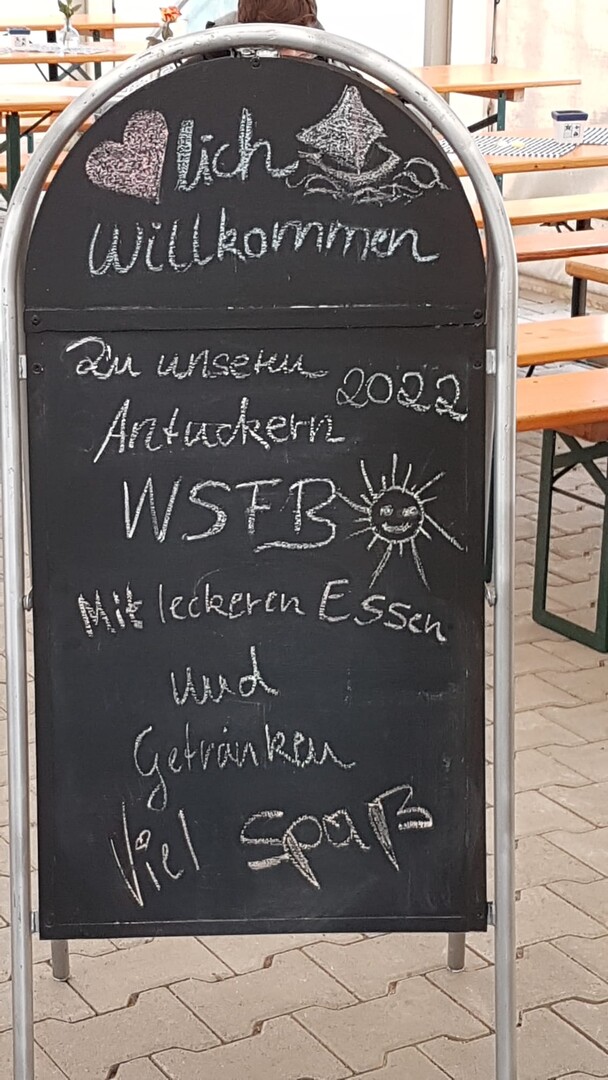 lich
Willkommen
Zu unseren
2022
Antuckern
WSFB
Mit leckeren Essen
und
Getränken
Viel Spaß